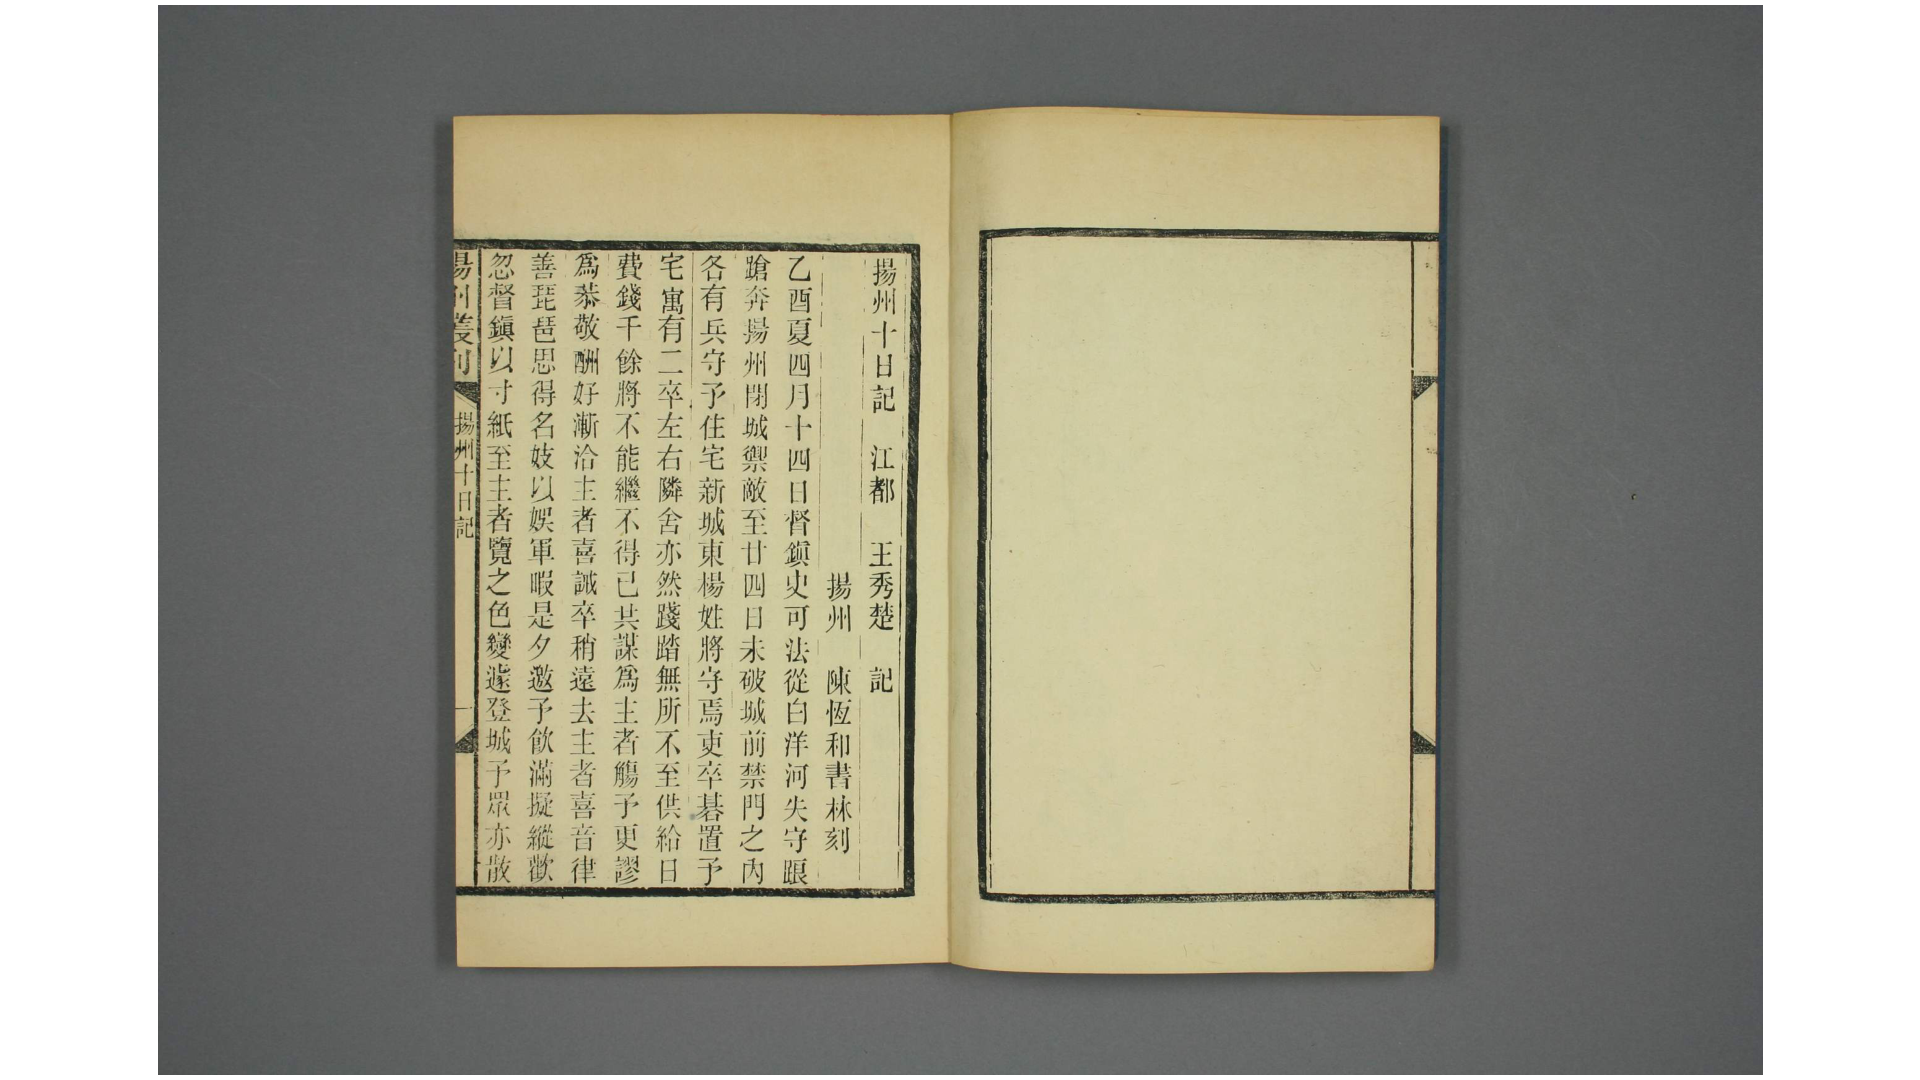 揚州十日記 江都 王秀楚 記
揚州 陳恆和書林刻
乙酉夏四月十四日督鎭史可法從白洋河失守踉
蹌奔揚州閉城禦敵至廿四日未破城前禁門之內
各有兵守予住宅新城東楊姓將守焉吏卒碁置予
宅寓有二卒左右隣舍亦然踐踏無所不至供給日
費錢千餘將不能繼不得已共謀爲主者觴予更謬
爲恭敬酬好漸洽主者喜誡卒稍遠去主者喜音律
善琵琶思得名妓以娛軍暇是夕邀予飮滿擬縱歡
忽督鎭以寸紙至主者覽之色變遽登城予眾亦散
揚州叢刊 揚州十日記 一